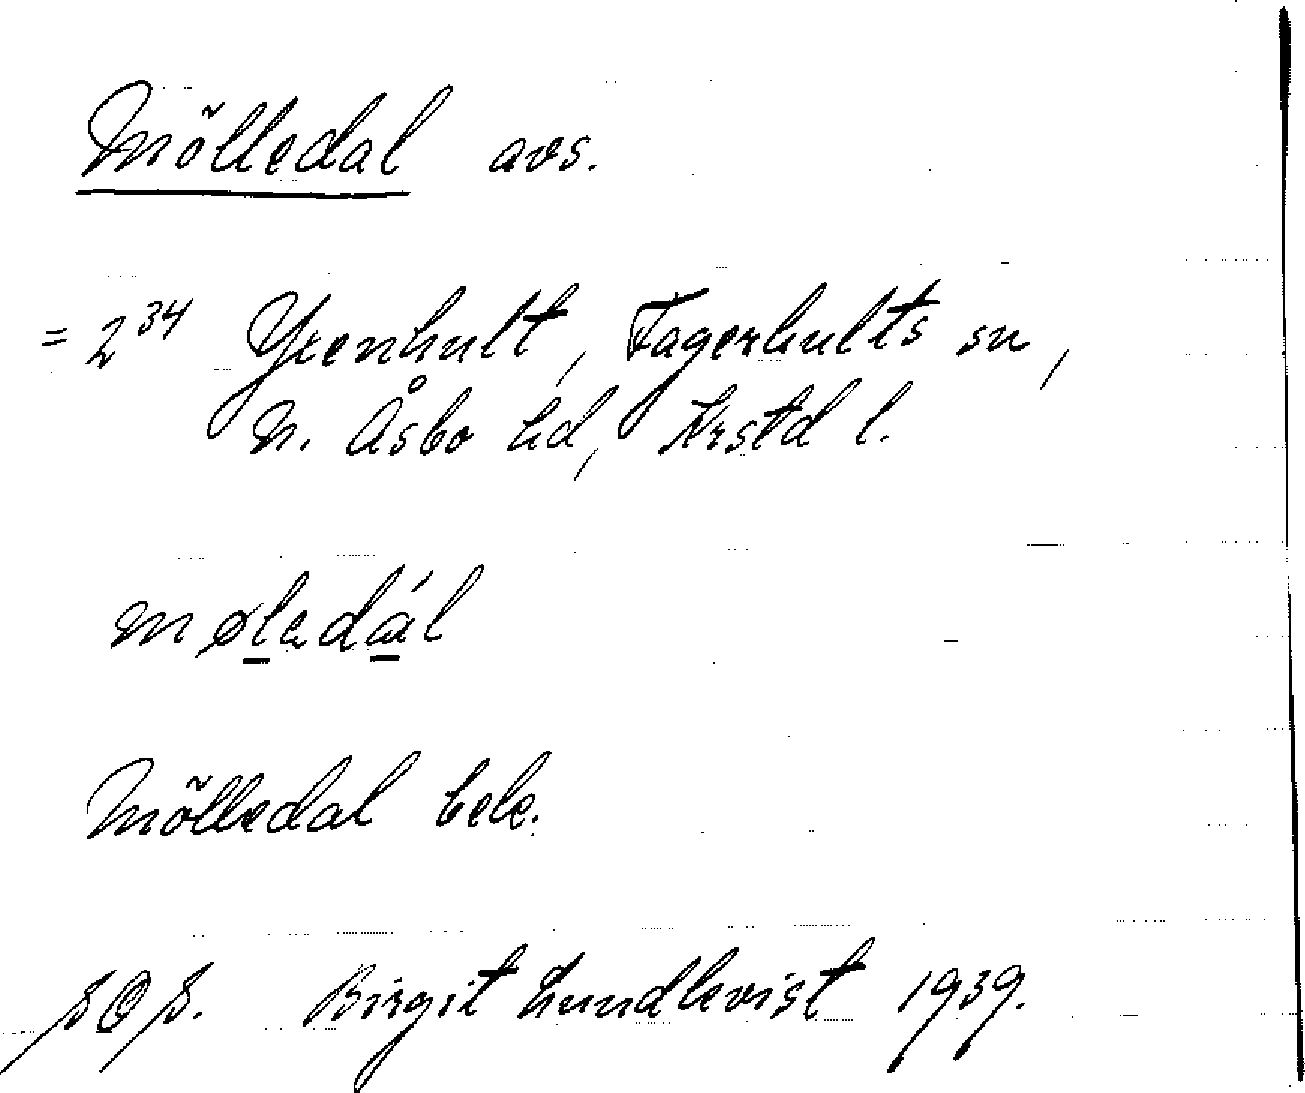 Mölledal avs.
= 2³⁴ Yxenhult, Fagerhults sn,
N. Åsbo hd, Krstd l.
møledál
Mölledal bebe.
Birgit Lundkvist 1939.